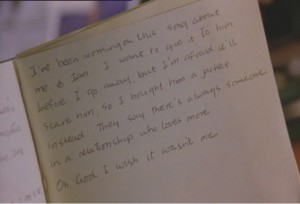 I've been working on this song about
me & Ian. I want to give it to him
before I go away but I'm afraid it'll
scare him, so I bought him a jacket
instead. They say there's always someone
in a relationship who loves more
Oh God I wish it wasn't me